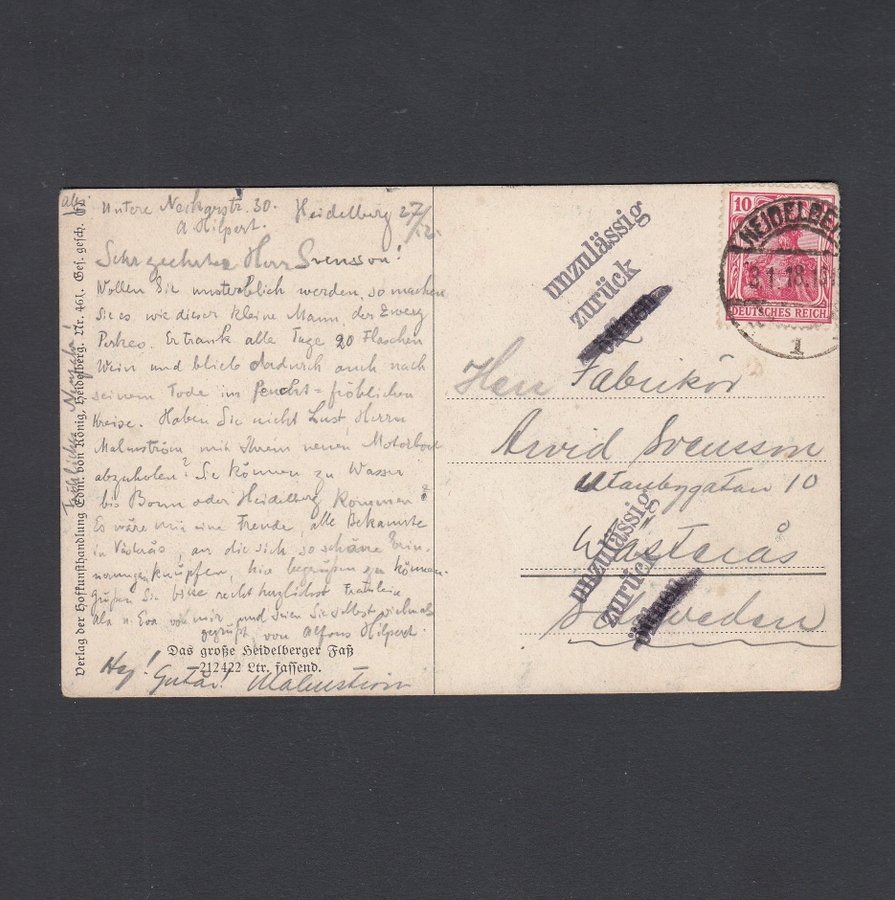 Untere Neckarstr. 30. Heidelberg 27/12.
A Hilpert.
Sehr geehrter Herr Svensson!
Wollen Sie unsterblich werden, so machen
Sie es wie dieser kleine Mann, der Zwerg
Perkeo. Er trank alle Tage 20 Flaschen
Wein und blieb dadurch auch nach
seinem Tode im feucht-fröhlichen
Kreise. Haben Sie nicht Lust, Herrn
Malmström mit Ihrem neuen Motorboot
abzuholen? Sie können zu Wasser
bis Bonn oder Heidelberg kommen!
Es wäre mir eine Freude, alle Bekannte
in Västerås, an die sich so schöne Erin-
nerungen knüpfen, hier begrüßen zu können.
Grüßen Sie bitte recht herzlichst Fräulein
u. Eva von mir und seien Sie selbst vielmals
gegrüßt von Alfons Hilpert.
Das große Heidelberger Faß
212422 Ltr. fassend.
Hej! Gutår! Malmström
Fröhliches Neujahr!
Verlag der Hofkunsthandlung Edm. von König, Heidelberg. Nr. 461. Ges. gesch.
10
DEUTSCHES REICH
HEIDELBE
1
unzulässig
zurück
Herr Fabrikör
Arvid Svensson
10
Västerås
unzulässig
zurück
Schweden